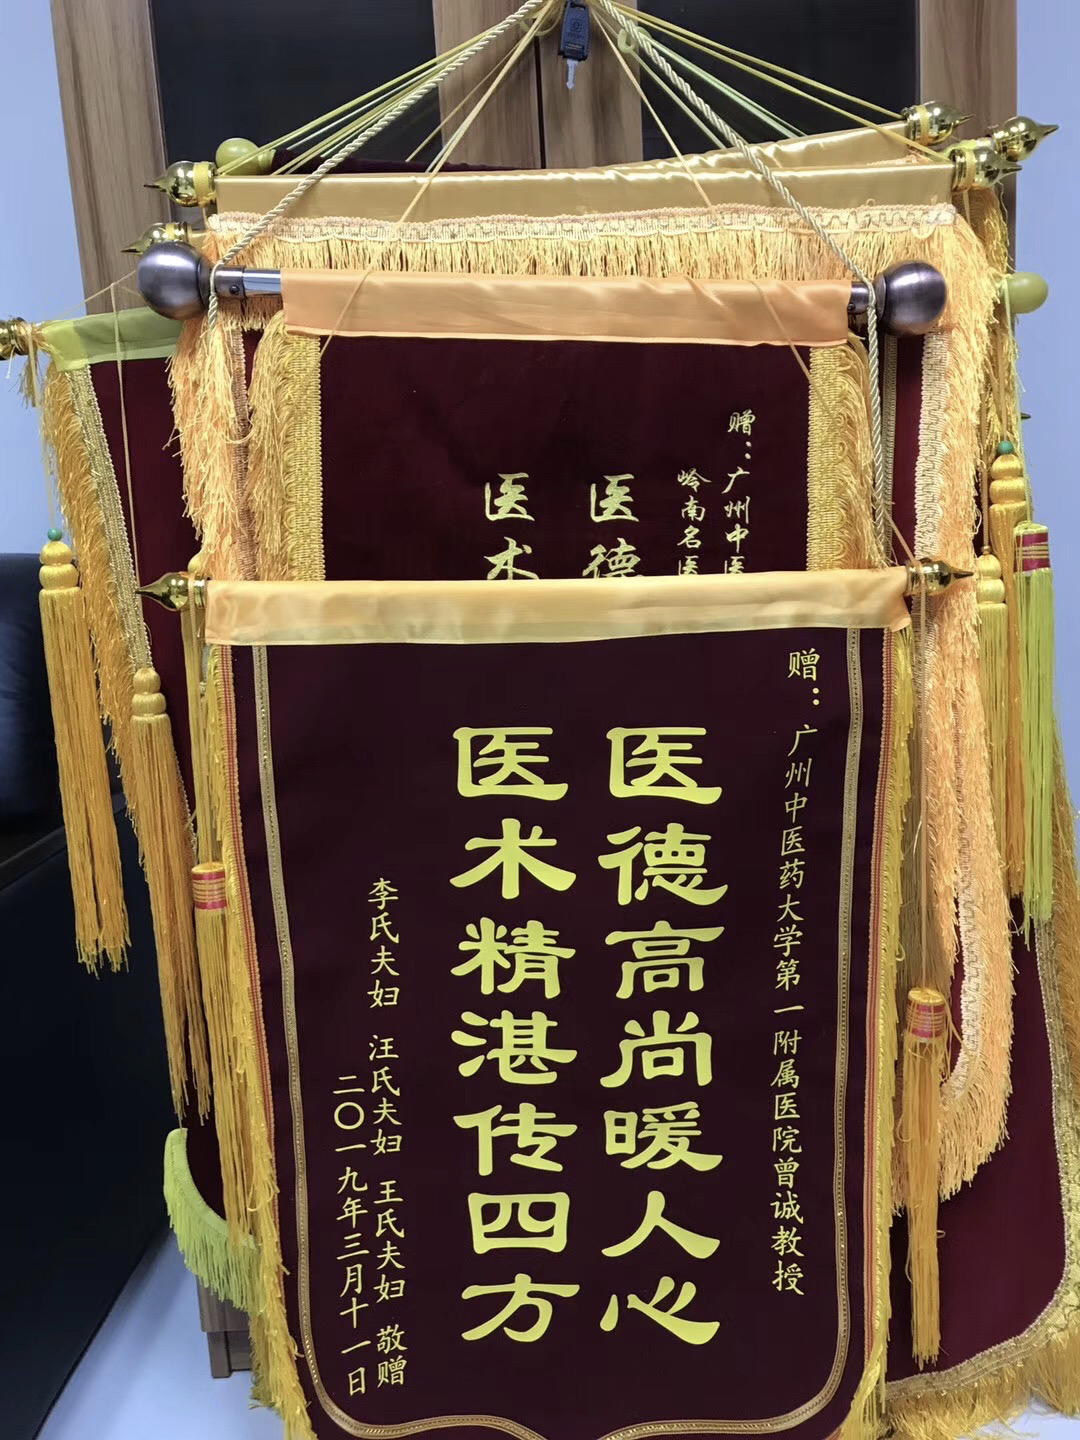 赠：广州中医
岭南名医
医德
医术
赠：广州中医药大学第一附属医院曾诚教授
医德高尚暖人心
医术精湛传四方
李氏夫妇 汪氏夫妇 王氏夫妇 敬赠
二〇一九年三月十一日